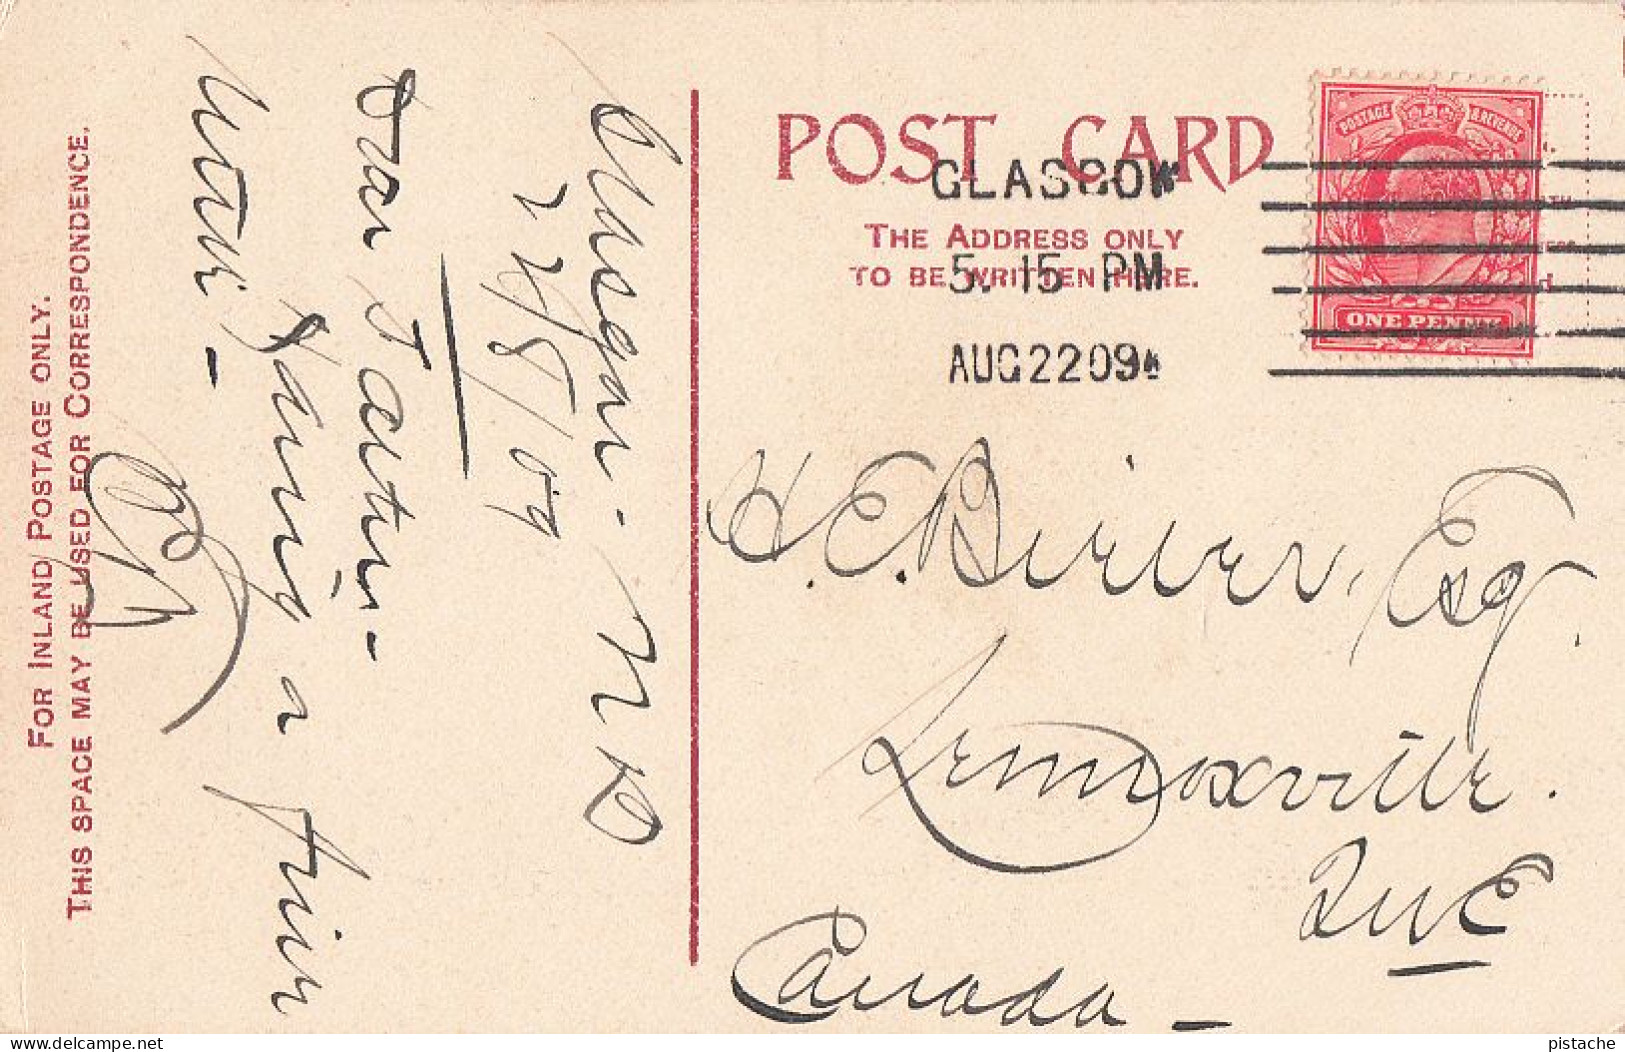 POST CARD
THE ADDRESS ONLY
TO BE WRITTEN HERE.
GLASGOW
5.15 PM
AUG 22 09
POSTAGE & REVENUE
ONE PENNY
H. E. Bierer, Esq.
Lennoxville.
QuE
Canada -
FOR INLAND POSTAGE ONLY.
THIS SPACE MAY BE USED FOR CORRESPONDENCE.
Glasgow - N B
22/8/09
Dear
Having a fine
delcampe.net
pistache